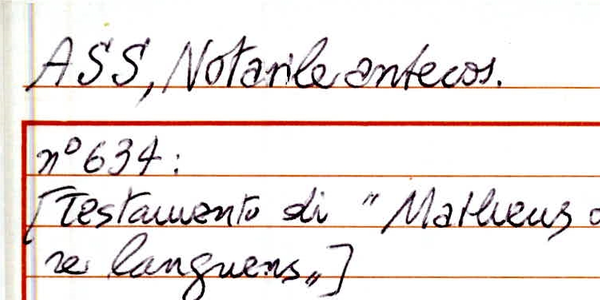 ASS, Notarile antecos.
n° 634:
[Testamento di "Matheus
re languens"]